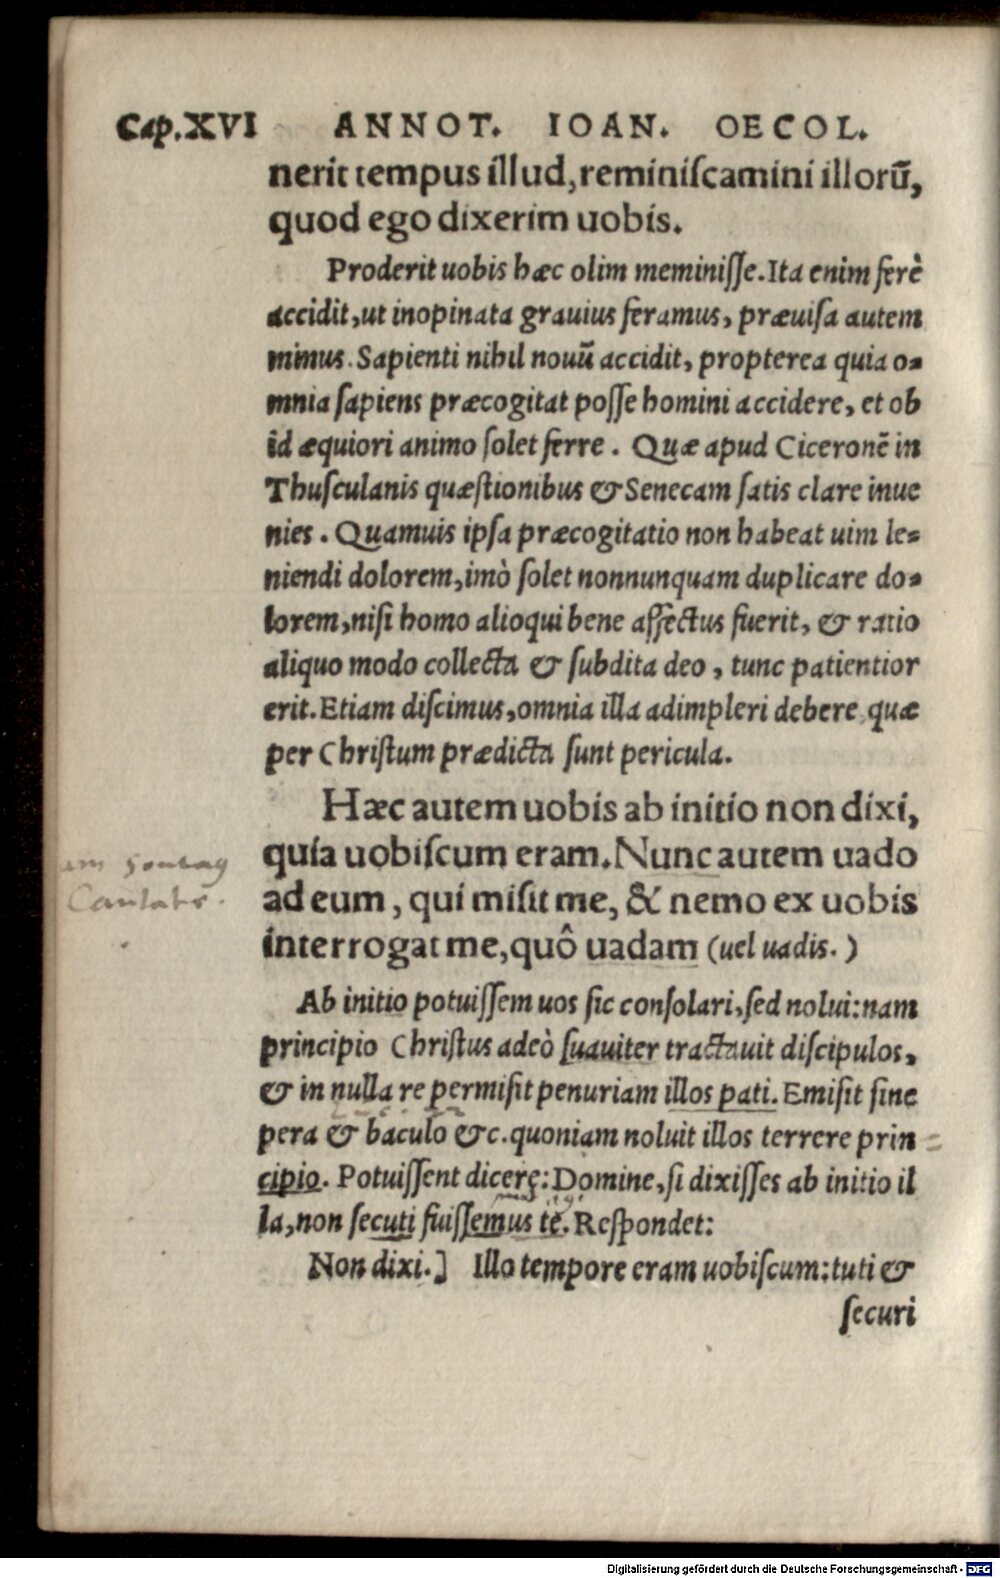 Cap.XVI ANNOT. IOAN. OECOL.
nerit tempus illud, reminiſcamini illorū,
quod ego dixerim uobis.
Proderit uobis hæc olim meminiſſe. Ita enim ferè
accidit, ut inopinata grauius feramus, præuiſa autem
minus. Sapienti nihil nouū accidit, propterea quia o-
mnia ſapiens præcogitat poſſe homini accidere, et ob
id æquiori animo ſolet ferre. Quæ apud Ciceronē in
Thuſculanis quæſtionibus & Senecam ſatis clare inue
nies. Quamuis ipſa præcogitatio non habeat uim le-
niendi dolorem, imò ſolet nonnunquam duplicare do-
lorem, niſi homo alioqui bene affectus fuerit, & ratio
aliquo modo collecta & ſubdita deo, tunc patientior
erit. Etiam diſcimus, omnia illa adimpleri debere quæ
per Chriſtum prædicta ſunt pericula.
Hæc autem uobis ab initio non dixi,
quia uobiſcum eram. Nunc autem uado
ad eum, qui miſit me, & nemo ex uobis
interrogat me, quô uadam (uel uadis.)
am Sontag
Cantate.
Ab initio potuiſſem uos ſic conſolari, ſed nolui: nam
principio Chriſtus adeò ſuauiter tractauit diſcipulos,
& in nulla re permiſit penuriam illos pati. Emiſit ſine
pera & baculo &c. quoniam noluit illos terrere prin
cipio. Potuiſſent dicere: Domine, ſi dixiſſes ab initio il
la, non ſecuti fuiſſemus te. Reſpondet:
Non dixi.] Illo tempore eram uobiſcum: tuti &
ſecuri
Digitalisierung gefördert durch die Deutsche Forschungsgemeinschaft - DFG